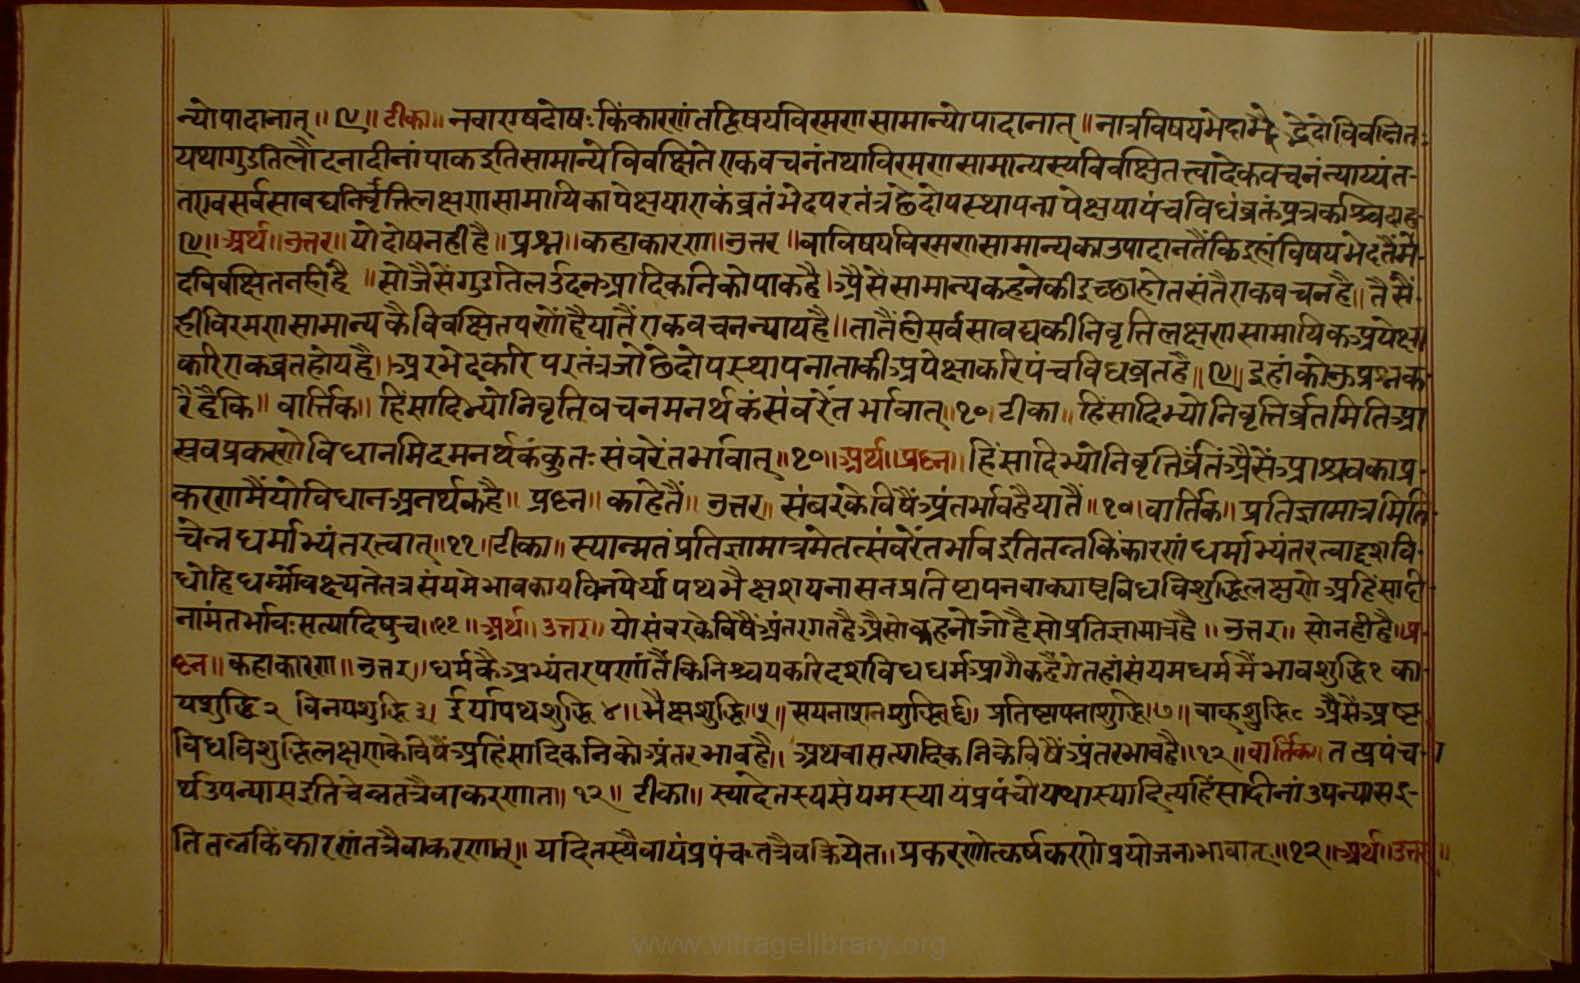 न्योपादानात्॥ ९॥ टीका॥ नवाएषदोषः किंकारणंतद्विषयविरमणसामान्योपादानात्॥ नात्रविषयभेदाद्भेदोविवक्षित
यथागुडतिलौदनादीनांपाकइतिसामान्येविवक्षितेएकवचनंतथाविरमणसामान्यस्यविवक्षितत्वादेकवचनंन्याय्यंत-
तएवसर्वसावद्यनिर्वृत्तिलक्षणसामायिकापेक्षयाएकंव्रतंभेदपरतंत्रछेदोपस्थापनापेक्षयापंचविधंव्रतं
९॥ अर्थ॥ उत्तर॥ योदोषनहीहै॥ प्रश्न॥ कहाकारण॥ उत्तर॥ वाविषयविरमणसामान्यकाउपादानतैंकिइहांविषयभेदतैंभे-
दविवक्षितनहीहै॥ सोजैसेंगुडतिलउदनआदिकनिकोपाकहै। ऐसेंसामान्यकहनेकीइच्छाहोतसंतैएकवचनहै॥ तैसैं-
हीविरमणसामान्यकैविवक्षितपणोंहैयातैंएकवचनन्यायहै॥ तातैंहीसर्वसावद्यकीनिवृत्तिलक्षणसामायिकअपेक्षा
करिएकव्रतहोयहै॥ अरभेदकरिपरतंत्रजोछेदोपस्थापनाताकीअपेक्षाकरिपंचविधव्रतहै॥ ९॥ इहांकोऊप्रश्नक-
रैहैकि॥ वार्त्तिक॥ हिंसादिभ्योनिवृत्तिवचनमनर्थकंसंवरेंतर्भावात्॥ १०॥ टीका॥ हिंसादिभ्योनिवृत्तिर्व्रतमितिआ
स्रवप्रकरणेविधानमिदमनर्थकंकुतःसंवरेंतर्भावात्॥ १०॥ अर्थ॥ प्रश्न॥ हिंसादिभ्योनिवृत्तिर्व्रतंऐसेंआश्रवकाप्र-
करणमैंयोविधानअनर्थकहै॥ प्रश्न॥ काहेतैं॥ उत्तर॥ संवरकेविषैंअंतर्भावहैयातैं॥ १०॥ वार्तिक॥ प्रतिज्ञामात्रमिति
चेन्नधर्माभ्यंतरत्वात्॥ ११॥ टीका॥ स्यान्मतंप्रतिज्ञामात्रमेतत्संवरेंतर्भावइतितन्नकिंकारणंधर्माभ्यंतरत्वाद्दशवि-
धोहिधर्म्मोवक्ष्यतेतत्रसंयमेभावकायविनयेर्यापथभैक्षशयनासनप्रतिष्टापनवाक्याष्टविधविशुद्धिलक्षणेअहिंसादी
नामंतर्भावःसत्यादिषुच॥ ११॥ अर्थ॥ उत्तर॥ योसंवरकेविषैंअंतरगतहैऐसोकहनोजोहैसोप्रतिज्ञामात्रहै॥ उत्तर॥ सोनहीहै॥ प्र-
श्न॥ कहाकारण॥ उत्तर॥ धर्मकैअभ्यंतरपणांतैंकिनिश्चयकरिदशविधधर्मआगैकहैंगेतहांसंयमधर्ममैंभावशुद्धि१ का-
यशुद्धि २ विनयशुद्धि ३। ईर्यापथशुद्धि ४॥ भैक्षशुद्धि॥५॥ सयनाशनशुद्धि॥६॥ प्रतिष्टापनाशुद्धि॥७॥ वाक्शुद्धि८ ऐसेंअष्ट-
विधविशुद्धिलक्षणकेविषैंअहिंसादिकनिकोअंतरभावहै॥ अथवासत्यादिकनिकेविषैंअंतरभावहै॥ १२॥ वार्त्तिक॥ तत्प्रपंच-
र्थउपन्यासइतिचेन्नतत्रैवाकरणात्॥ १२॥ टीका॥ स्यादेतस्यसंयमस्यायंप्रपंचोयथास्यादित्यहिंसादीनांउपन्यासइ-
तितन्नकिंकारणंतत्रैवाकरणात्॥ यदितस्यैवायंप्रपंचःतत्रैवक्रियेत॥ प्रकरणोत्कर्षकरणेप्रयोजनाभावात्॥ १२॥ अर्थ॥ उत्तर॥
www.vitragelibrary.org